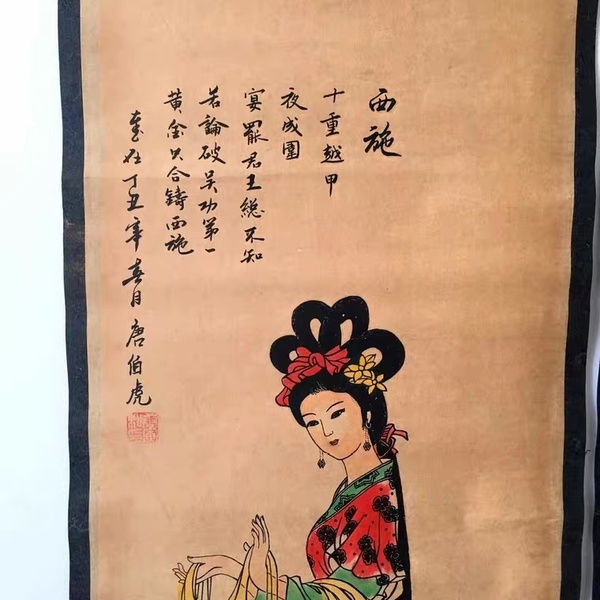 西施
十重越甲
夜成圍
宴罷君王總不知
若論破吳功第一
黃金只合鑄西施
歲在丁丑年春月唐伯虎